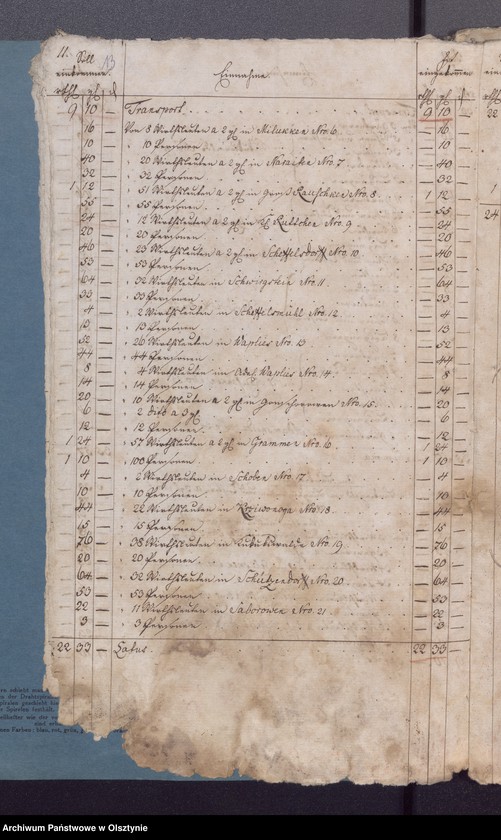 11. Soll
einkommen.
13
Einnahme
Ist
eingekommen
rthl gl d
rthl gl d
9 10 — Transport 9 10 —
16 — Von 8 Wirthsleuten a 2 gl in Milukken Nro. 6 — 16 —
10 — 10 Personen — 10 —
40 — 20 Wirthsleuten a 2 gl in Narajthen Nro. 7 — 40 —
32 — 32 Personen — 32 —
1 12 — 51 Wirthsleuten a 2 gl in Gros Rauschken Nro. 8 1 12 —
55 — 55 Personen — 55 —
24 — 12 Wirthsleuten a 2 gl in Kl. Ruttken Nro. 9 — 24 —
20 — 20 Personen — 20 —
46 — 23 Wirthsleuten a 2 gl in Scheffelsdorff Nro. 10 — 46 —
53 — 53 Personen — 53 —
64 — 32 Wirthsleuten in Schwirgstein Nro. 11 — 64 —
33 — 33 Personen — 33 —
4 — 2 Wirthsleuten in Scheffelsmühl Nro. 12 — 4 —
13 — 13 Personen — 13 —
52 — 26 Wirthsleuten in Waplies Nro. 13 — 52 —
44 — 44 Personen — 44 —
8 — 4 Wirthsleuten im Adl. Waplies Nro. 14 — 8 —
14 — 14 Personen — 14 —
20 — 10 Wirthsleuten a 2 gl in Nro. 15 — 20 —
6 — 2 dito a 3 gl — 6 —
12 — 12 Personen — 12 —
1 24 — 57 Wirthsleuten a 2 gl in Grammen Nro. 16 1 24 —
1 10 — 100 Personen 1 10 —
4 — 2 Wirthsleuten in Schoben Nro. 17 — 4 —
10 — 10 Personen — 10 —
44 — 22 Wirthsleuten in Krziwonoga Nro. 18 — 44 —
15 — 15 Personen — 15 —
76 — 38 Wirthsleuten in Nro. 19 — 76 —
20 — 20 Personen — 20 —
64 — 32 Wirthsleuten in Schützendorff Nro. 20 — 64 —
53 — 53 Personen — 53 —
22 — 11 Wirthsleuten in Saborowen Nro. 21 — 22 —
3 — 3 Personen — 3 —
22 33 — Latus 22 33 —
22
1
24
Archiwum Państwowe w Olsztynie